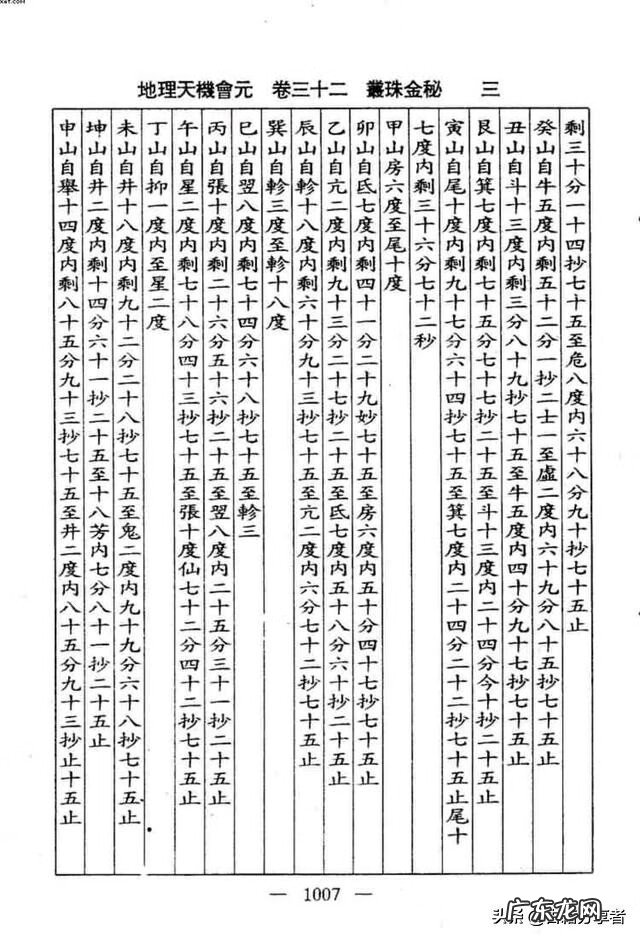 地理天機會元 卷三十二 叢珠金秘 三
剩三十分一十四抄七十五至危八度內六十八分九十抄七十五止
癸山自牛五度內剩五十二分一抄二士一至虛二度內六十九分八十五抄七十五止
丑山自斗十三度內剩三分八十九抄七十五至牛五度內四十分九十七抄七十五止
艮山自箕七度內剩七十五分七十七抄二十五至斗十三度內二十四分今十抄二十五止
寅山自尾十度內剩九十七分六十四抄七十五至箕七度內二十四分二十二抄七十五止尾十
七度內剩三十六分七十二秒
甲山房六度至尾十度
卯山自氐七度內剩四十一分二十九妙七十五至房六度內五十分四十七抄七十五止
乙山自亢二度內剩九十三分二十七抄二十五至氐七度內五十八分六十抄二十五止
辰山自軫十八度內剩六十分九十三抄七十五至亢二度內六分七十二抄七十五止
巽山自軫三度至軫十八度
巳山自翌八度內剩七十四分六十八抄七十五至軫三
丙山自張十度內剩二十六分五十六抄二十五至翌八度內二十五分三十一抄二十五止
午山自星二度內剩七十八分四十三抄七十五至張十度仙七十二分四十二抄七十五止
丁山自抑一度內至星二度
未山自井十八度內剩九十二分二十八抄七十五至鬼二度內九十九分六十八抄七十五止
坤山自井二度內剩十四分六十一抄二十五至十八芳內七分八十一抄二十五止
申山自舉十四度內剩八十五分九十三抄七十五至井二度內八十五分九十三抄止十五止
— 1007 —
广东龙网